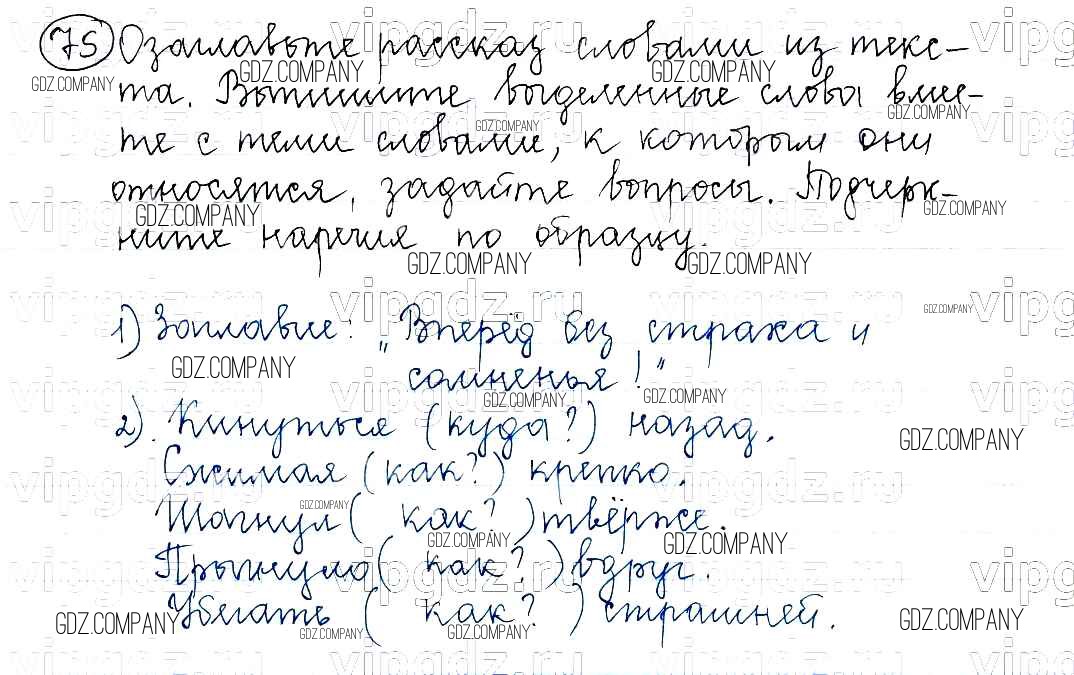 75 Озаглавьте рассказ словами из текс-
та. Выпишите выделенные слова вмес-
те с теми словами, к которым они
относятся, задайте вопросы. Подчерк-
ните наречия по образцу.
1) Заглавие: „Вперёд без страха и
сомненья!"
2). Кинуться (куда?) назад.
Сжимая (как?) крепко.
Шагнул ( как? ) твёрже.
Прыгнуло ( как? ) вдруг.
Убегать ( как? ) страшней.
vipgdz.ru
GDZ.COMPANY